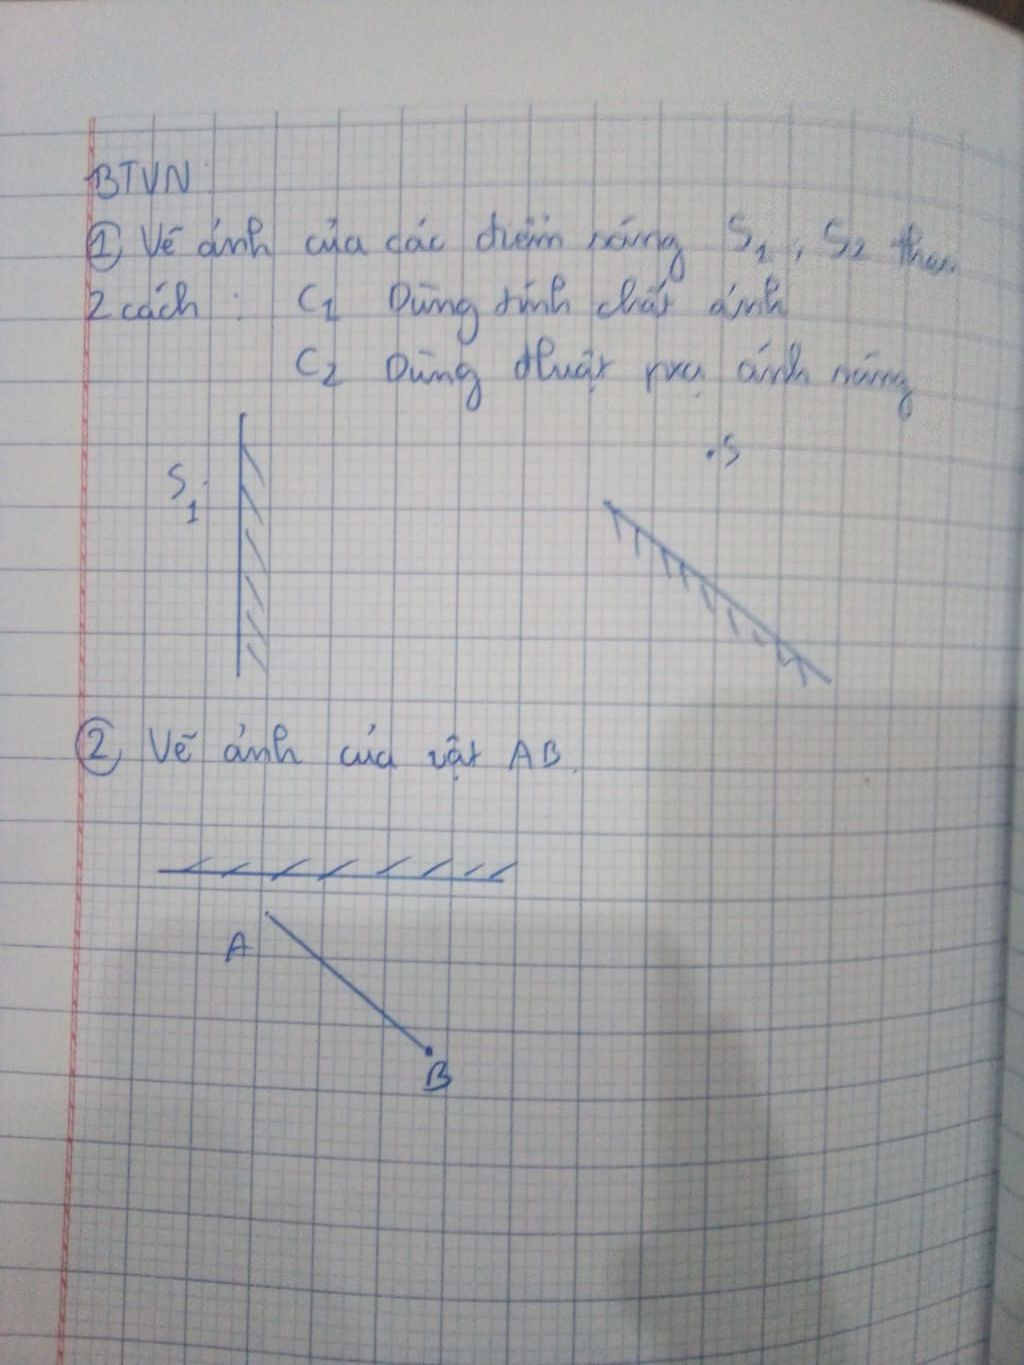 BTVN
① Vẽ ảnh của các điểm sáng S1, S2 theo
2 cách : C1 Dùng tính chất ảnh
C2 Dùng định luật pxạ ánh sáng
S1
.S
② Vẽ ảnh của vật AB.
A
B